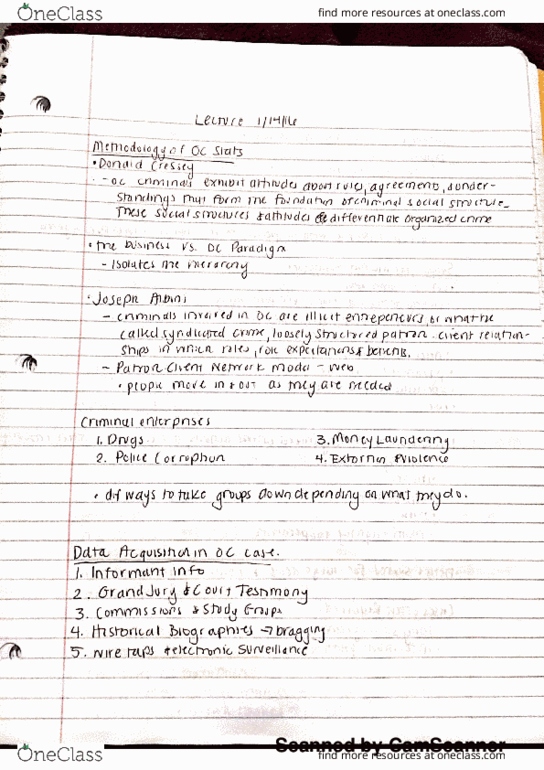 OneClass
find more resources at oneclass.com
Lecture 1/14/16
Methodology of OC Stats
• Donald Cressey
- OC criminals exhibit attitudes about rules, agreements, & under-
standings that form the foundation of criminal social structure.
These social structures & attitudes differentiate organized crime
• The business vs. OC Paradigm
- Isolates the hierarchy
• Joseph Albini
- criminals involved in OC are illicit entrepeneurs, or what he
called syndicated crime, loosely structured patron-client relation-
ships in which roles, role expectations & benefits.
- Patron Client Network model - web
• people move in & out as they are needed
Criminal enterprises
1. Drugs 3. Money Laundering
2. Police Corruption 4. Extortion & Violence
• dif ways to take groups down depending on what they do.
Data Acquisition in OC case.
1. Informant info
2. Grand Jury & Court Testimony
3. Commissions & Study Groups
4. Historical Biographies → bragging
5. wire taps & electronic surveillance
Scanned by CamScanner
OneClass
find more resources at oneclass.com